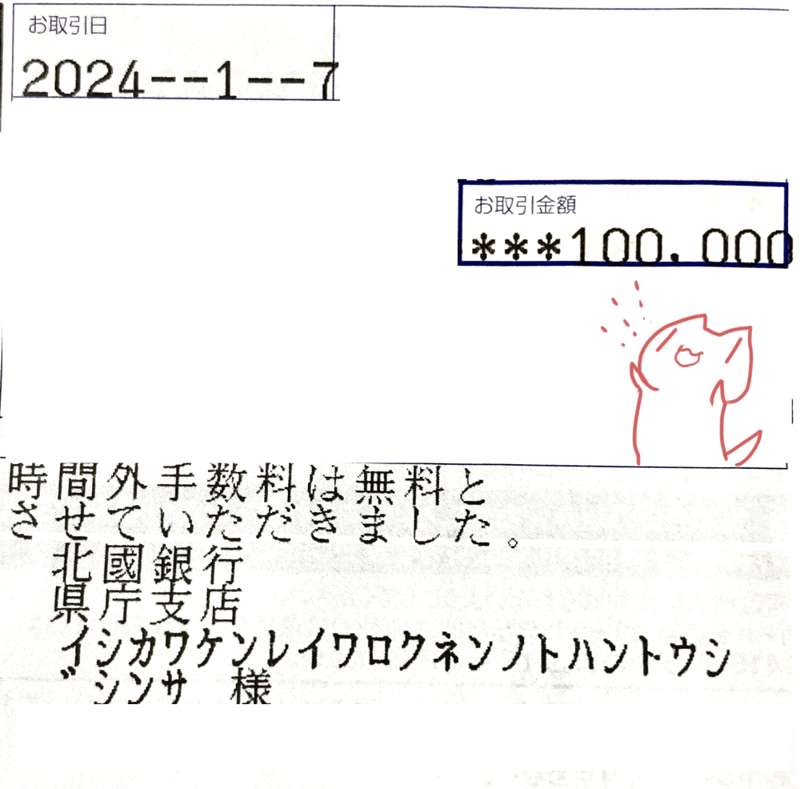 お取引日
2024--1--7
お取引金額
***100,000
時間外手数料は無料と
させていただきました。
北國銀行
県庁支店
イシカワケンレイワロクネンノトハントウシ
゛シンサ 様